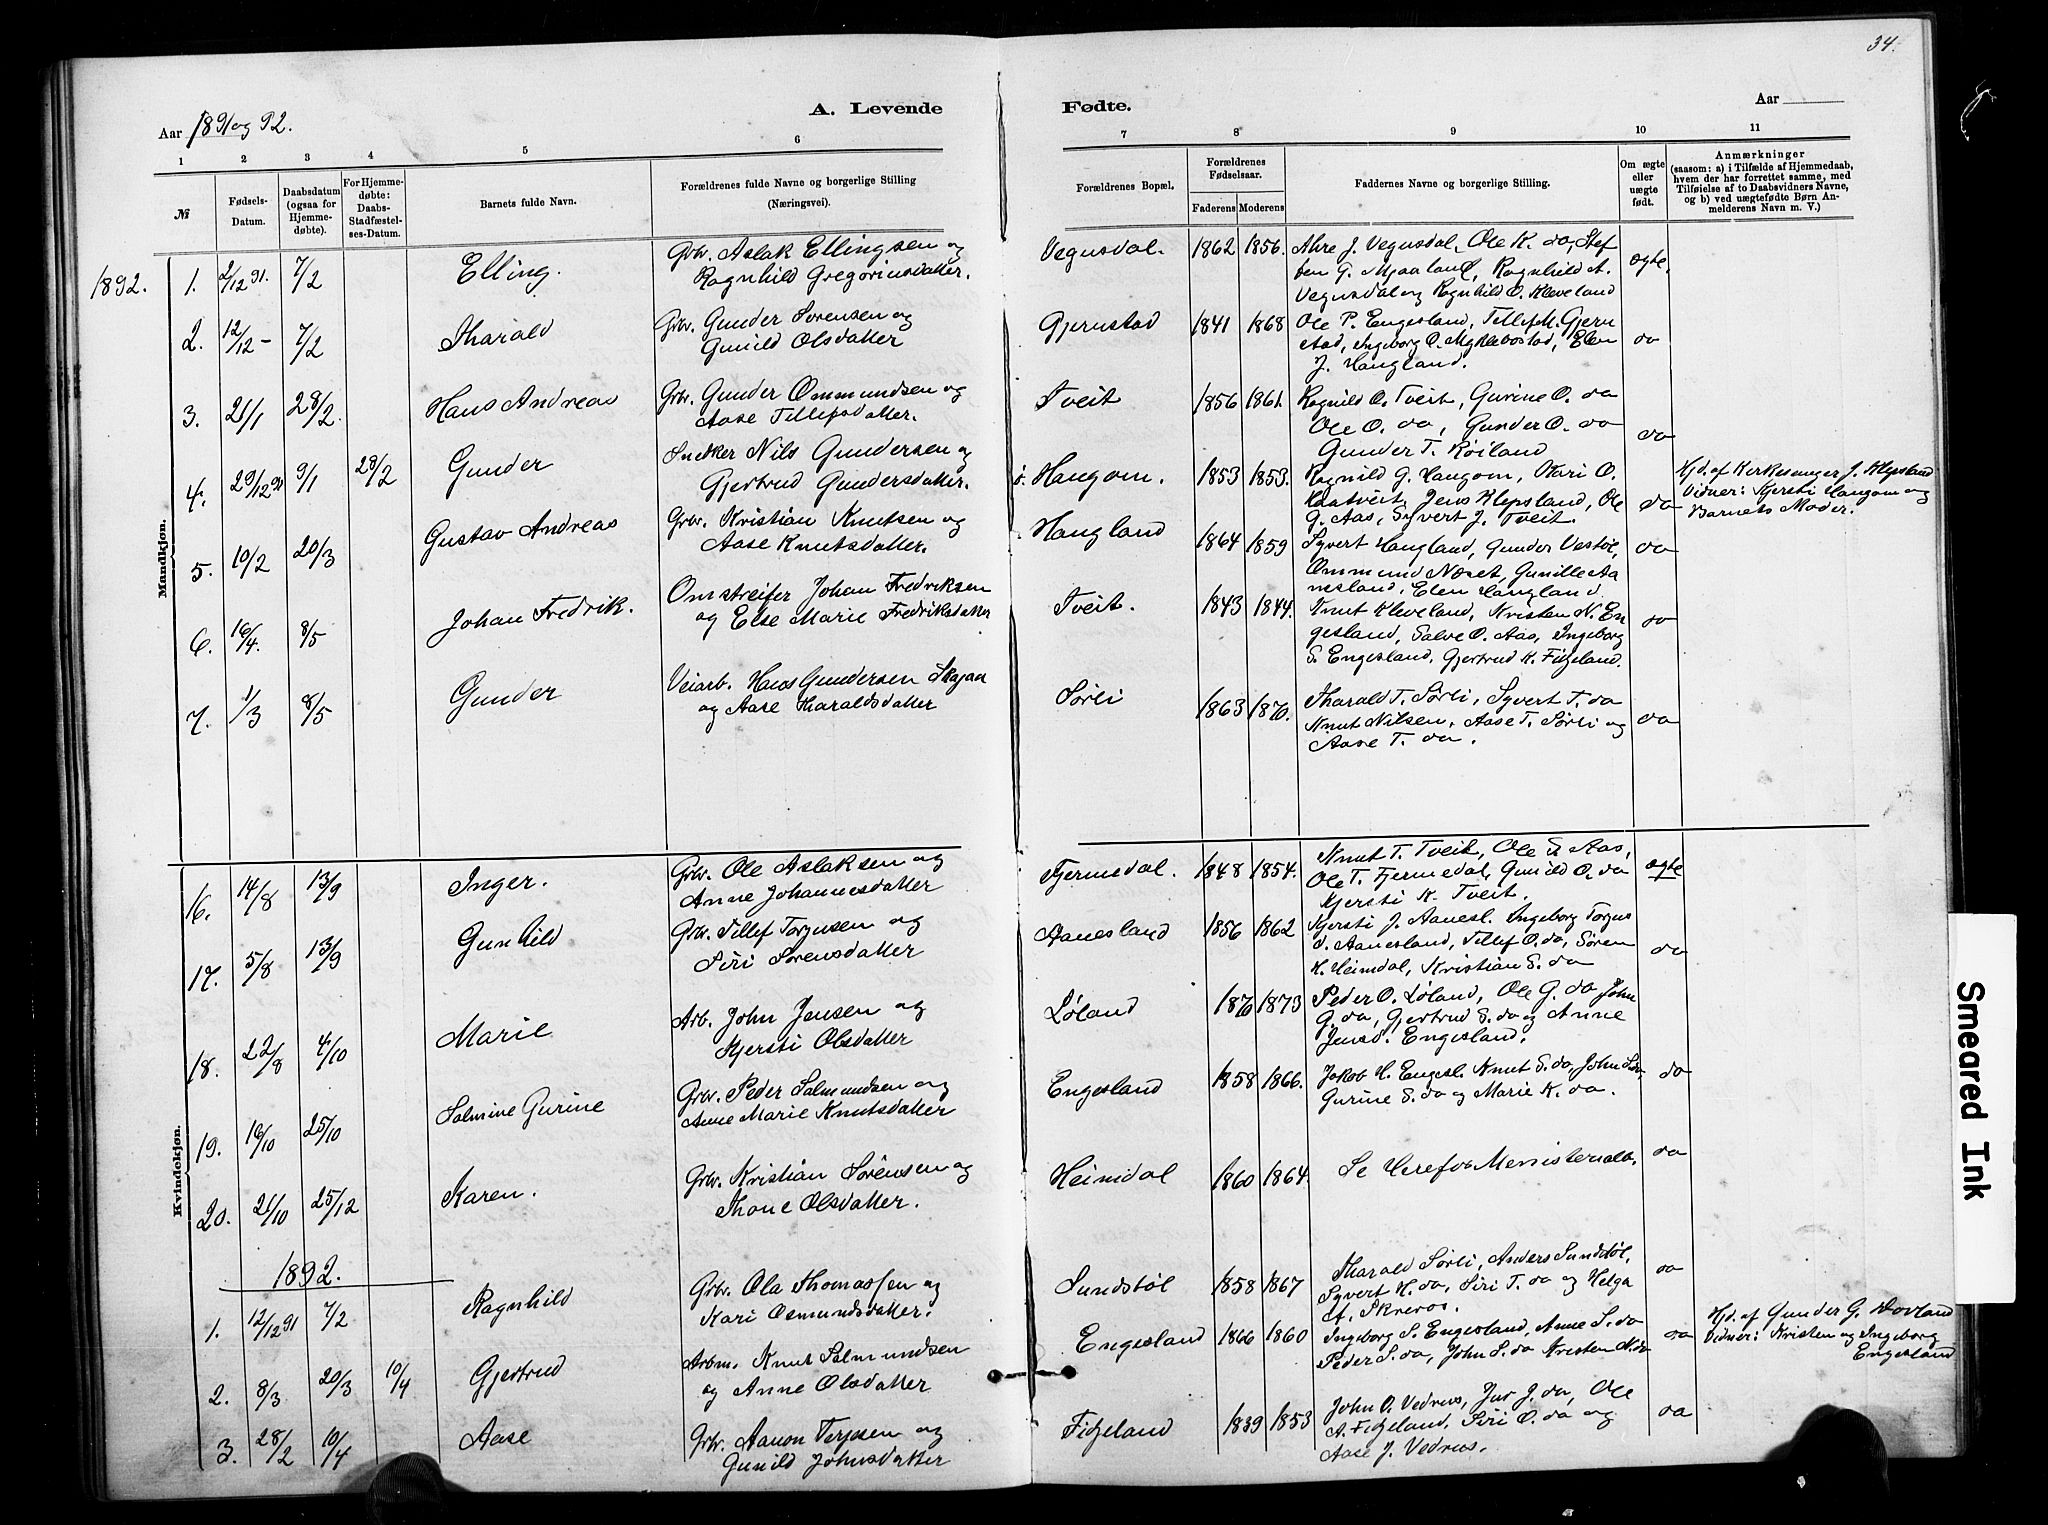 34.
A. Levende Fødte.
Aar 1891 og 92.
Aar
1 2 3 4 5 6 7 8 9 10 11
№
Fødsels-Datum.
Daabsdatum (ogsaa for Hjemmedøbte).
For Hjemmedøbte: Daabs-Stadfæstelses-Datum.
Barnets fulde Navn.
Forældrenes fulde Navne og borgerlige Stilling (Næringsvei).
Forældrenes Bopæl.
Forældrenes Fødselsaar.
Faderens Moderens
Faddernes Navne og borgerlige Stilling.
Om ægte eller uægte født.
Anmærkninger
(saasom: a) i Tilfælde af Hjemmedaab,
hvem der har forrettet samme, med
Tilføielse af to Daabsvidners Navne,
og b) ved uægtefødte Børn Anmelderens Navn m. V.)
Mandkjøn.
1892. 1. 2/12 91. 7/2 Elling. Grbr. Aslak Ellingsen og
Ragnhild Gregoriusdatter.
Vegusdal. 1862 1856. J. Vegusdal, Ole K. do, Stef
fen G. Mjaaland, Ragnhild A.
Vegusdal og Ragnhild O. Kleveland
ægte.
2. 12/12 - 7/2 Tharald Grbr. Gunder Sørensen og
Gunild Olsdatter
Gjerustad 1841 1868 Ole P. Engesland, Tellef M. Gjeru
stad, Ingeborg O. Myklebostad, Elen
J. Haugland.
do
3. 21/1 28/2. Hans Andreas Grbr. Gunder Ommundsen og
Aase Tellefsdatter.
Tveit 1856 1861. Ragnild O. Tveit, Gurine O. do
Ole O. do, Gunder O. do
Gunder T. Røiland
do
4. 29/12 91 9/1 28/2 Gunder Snedker Nils Gundersen og
Gjertrud Gundersdatter.
Haugom. 1853 1853. Ragnild G. Haugom, Kari O.
Kaatveit, Jens Klepsland, Ole
G. Aas, Syvert J. Tveit.
do
Hjd. af Kirkesanger J. Klepsland
Vidner: Kjersti Haugom og
Barnets Moder.
5. 10/2 20/3 Gustav Andreas Grbr. Kristian Knutsen og
Aase Knutsdatter.
Haugland 1864 1859 Syvert Haugland, Gunder Vestøl,
Ommund Næset, Gunille Aa
nesland, Elen Haugland.
do
6. 16/4. 8/5 Johan Fredrik. Omstreifer Johan Fredriksen
og Else Marie Fredriksdatter
Tveit. 1843 1844. Knut Kleveland, Kristen N. En
gesland, Salve O. Aas, Ingeborg
S. Engesland, Gjertrud K. Fidjeland.
do
7. 1/3 8/5 Gunder Veiarb. Hans Gundersen Skajaa
og Aase Haraldsdatter
Sørli 1863 1870. Tharald T. Sørli, Syvert T. do
Knut Nilsen, Aase T. Sørli og
Aase T. do.
do
Kvindekjøn.
16. 14/8 13/9 Inger. Grbr. Ole Aslaksen og
Anne Johannesdatter
Fjermedal. 1848 1854. Knut T. Tveit, Ole S. Aas,
Ole T. Fjermedal, Gunild O. do
Kjersti K. Tveit.
ægte
17. 5/8 13/9 Gunhild Grbr. Tellef Torjusen og
Siri Sørensdatter
Aanesland 1856 1862 Kjersti J. Aanesl. Ingeborg Torjus
d. Aanesland, Tellef O. do, Søren
K. Heimdal, Kristian S. do
do
18. 22/8 4/10 Marie Arb. John Jensen og
Kjersti Olsdatter
Løland 1870 1873 Peder O. Løland, Ole G. do John
G. do, Gjertrud S. do og Anne
Jensd. Engesland.
19. 16/10 25/10 Salmine Gurine Grbr. Peder Salmundsen og
Anne Marie Knutsdatter
Engesland 1858 1866. Jakob H. Engesl. Knut S. do, John S. do,
Gurine S. do og Marie K. do.
do
20. 21/10 25/12 Karen. Grbr. Kristian Sørensen og
Thone Olsdatter.
Heimdal 1860 1864. Se Herefos Ministerialb.
do
1892.
1. 12/12 91 7/2 Ragnhild Grbr. Ola Thomassen og
Kari Osmundsdatter.
Sundstøl 1858 1867 Tharald Sørli, Anders Sundstøl,
Syvert H. do, Siri T. do og Helga
A. Skreros.
do
2. 8/3 20/3 10/4 Gjertrud Arbm. Knut Salmundsen
og Anne Olsdatter
Engesland 1866 1860 Ingeborg S. Engesland, Anne S. do
Peder S. do, John S. do Kristen N. do
do
Hjd. af Gunder G. Dovland
Vidner: Kristen og Ingeborg
Engesland
3. 28/2 10/4 Aase Grbr. Aanon Terjesen og
Gunild Johnsdatter
Fidjeland 1839 1853 John O. Vedrus, J. do, Ole
A. Fidjeland, Siri O. do og
Aase J. Vedrus.
do
Smeared Ink